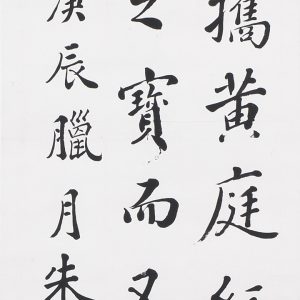 攜黃庭
之寶而又
庚辰臘月朱